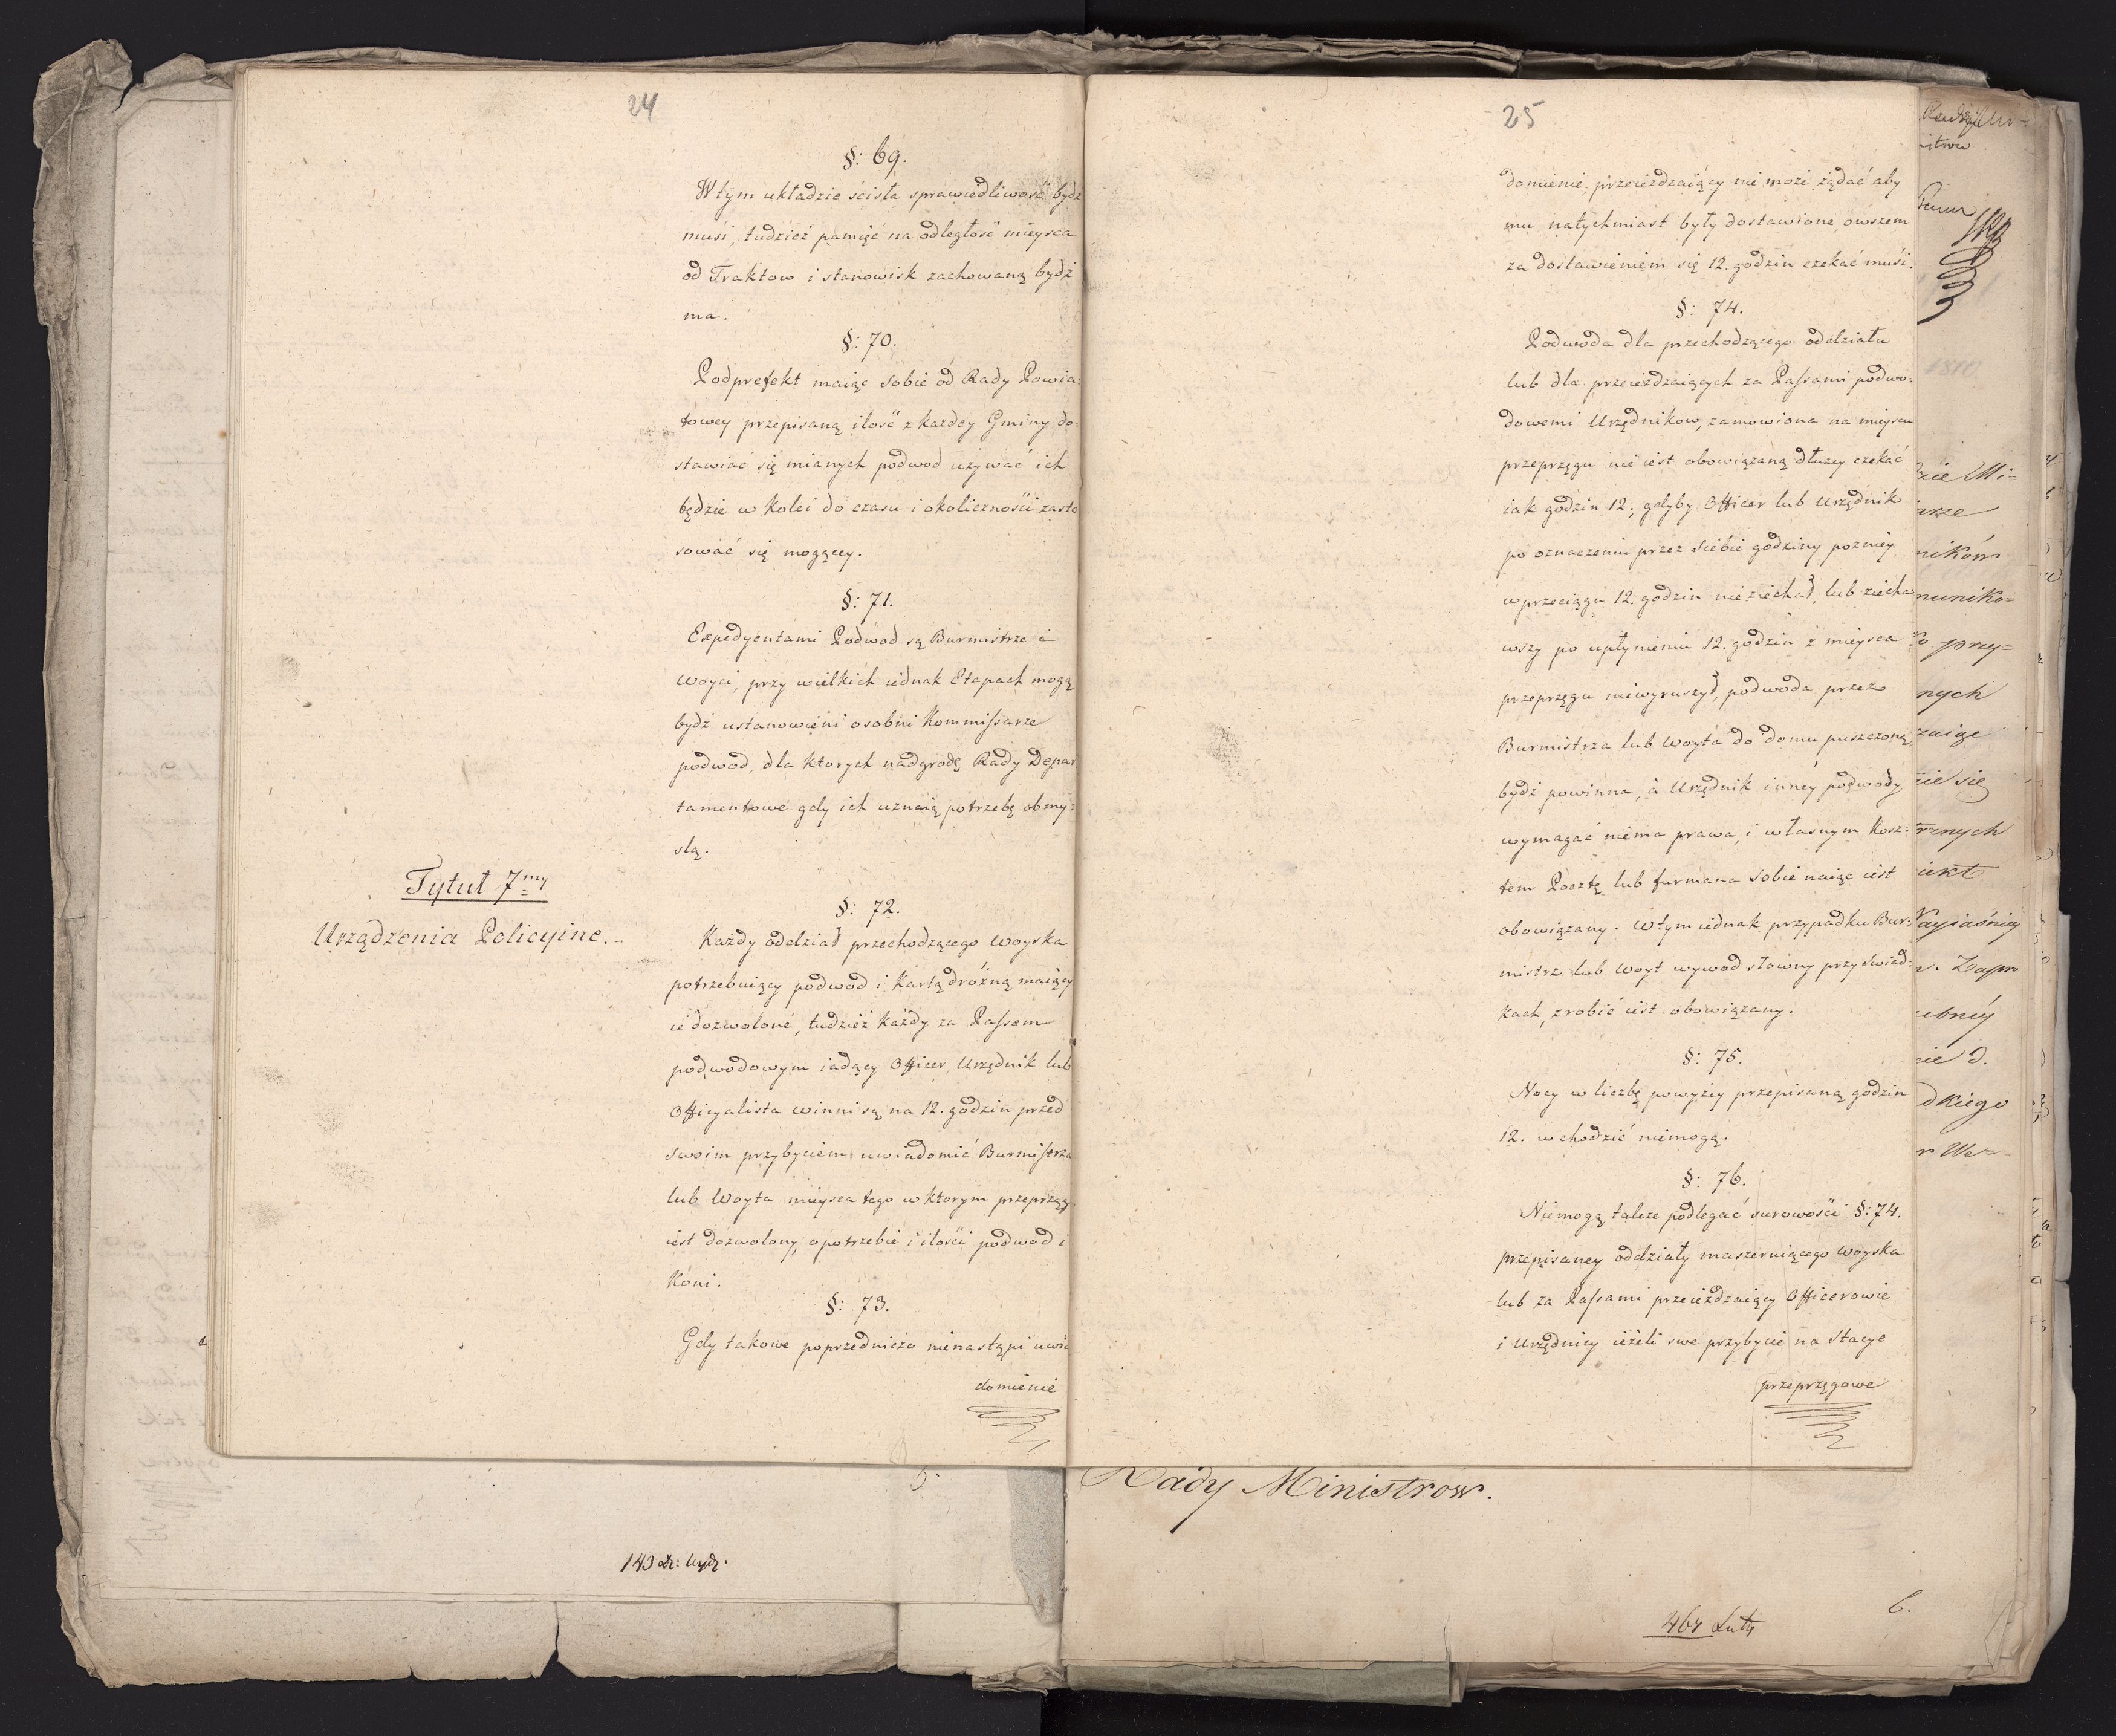 24
§: 69.
Wtym układzie ścisła sprawiedliwość bydź
musi, tudzież pamięć na odległość mieysca
od Traktow i stanowisk zachowaną bydź
ma.
§: 70.
Podprefekt maiąc sobie od Rady Powia:
towey przepisaną ilość z każdey Gminy do:
stawiać się mianych podwod używać ich
będzie w kolei do czasu i okoliczności zasto
sować się mogącey.
§: 71.
Expedyentami Podwod są Burmistrze i
Woyci, przy wielkich iednak Etapach mogą
bydź ustanowieni osobni Kommissarze
podwod, dla ktorych nadgrodę Rady Depar
tamentowe gdy ich uznaią potrzebę obmy:
slą.
Tytuł 7my
Urządzenia Policyine.
§: 72.
Każdy oddział przechodzącego woyska
potrzebuiący podwod i Kartą dróżną maiący
ie dozwolone, tudzież Każdy za Passem
podwodowym iadący Officer, Urzędnik lub
Officyalista winni są na 12. godzin przed
swoim przybyciem uwiadomić Burmistrza
lub Woyta mieysca tego w ktorym przeprząg
iest dozwolony, o potrzebie i ilości podwod i
Koni.
§: 73.
Gdy takowe poprzedniczo nienastąpi uwia
domienie
25
domienie, przeieżdzaiący nie może żądać aby
mu natychmiast były dostawione owszem
za dostawieniem się 12. godzin czekać musi.
§: 74.
Podwoda dla przechodzącego oddziału
lub dla przeieżdzaiących za Passami podwo:
dowemi Urzędnikow, zamowiona na mieyscu
przeprzęgu nie iest obowiązaną dłużey czekać
iak godzin 12., gdyby Officer lub Urzędnik
po oznaczeniu przez siebie godziny pozniey
w przeciągu 12. godzin nieziechał, lub ziecha
wszy po upłynieniu 12. godzin z mieysca
przeprzęgu niewyruszył, podwoda przez
Burmistrza lub Woyta do domu puszczoną
bydź powinna, a Urzędnik inney podwody
wymagać niema prawa, i własnym kosz:
tem Pocztę lub furmana sobie naiąć iest
obowiązany. Wtym iednak przypadku Bur:
mistrz lub Woyt wywod słowny przy swiad:
kach, zrobić iest obowiązany.
§: 75.
Nocy w liczbę powyżey przepisaną godzin
12. wchodzić niemogą.
§: 76.
Niemogą także podlegać surowości §: 74.
przepisaney oddziały maszeruiącego woyska
lub za Passami przeieżdzaiący Officerowie
i Urzędnicy ieżeli swe przybycie na Stacye
przeprzęgowe
Rady Ministrow.
5.
6.